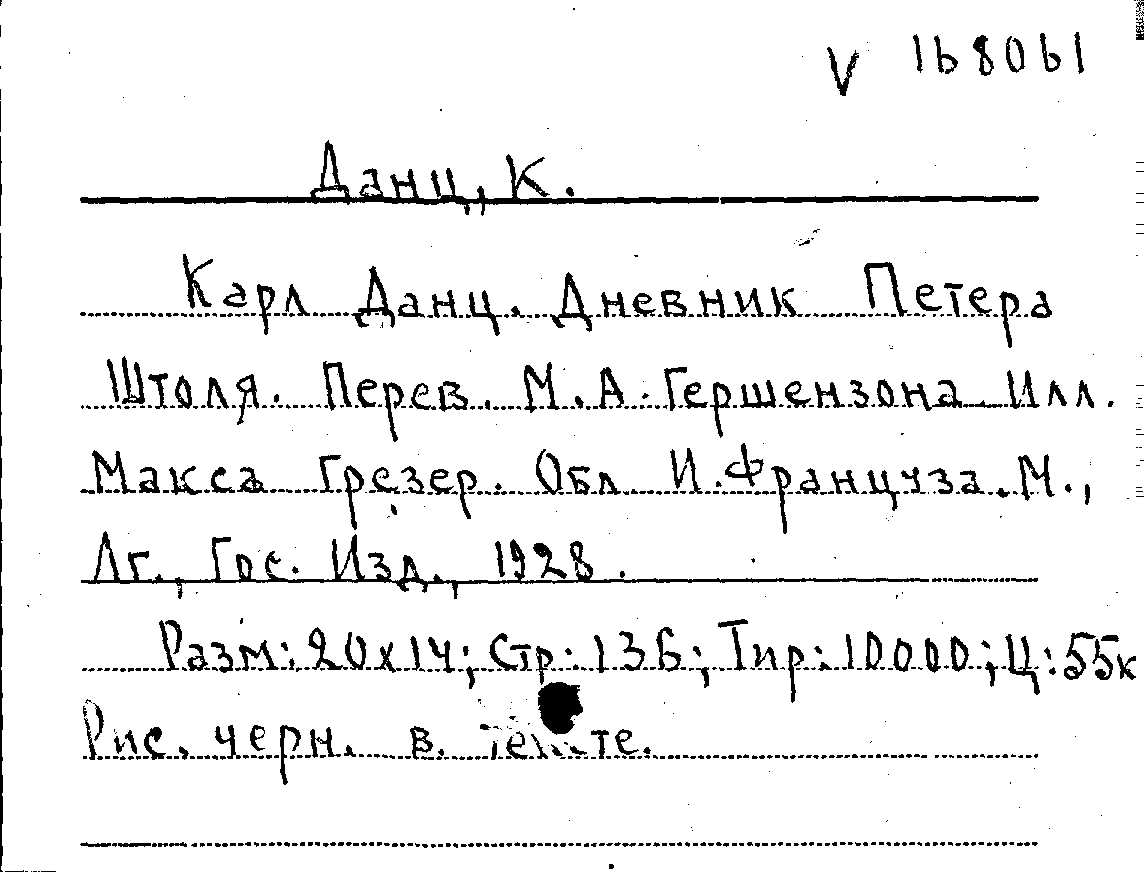 V 168061
Данц, К.
Карл Данц. Дневник Петера
Штоля. Перев. М.А. Гершензона. Илл.
Макса Грезер. Обл И. Француза. М.,
Лг., Гос. Изд., 1928.
Разм: 20х14; Стр: 136; Тир: 10000; Ц: 55к
Рис. черн. в. тексте.